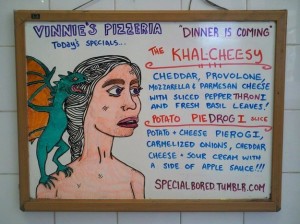 VINNIE'S PIZZERIA
Today's SPECIALS...
"DINNER IS COMING"
THE KHALCHEESY
CHEDDAR, PROVOLONE,
MOZZARELLA & PARMESAN CHEESE
WITH SLICED PEPPER THRONI
AND FRESH BASIL LEAVES!
POTATO PIEDROGI SLICE
POTATO + CHEESE PIEROGI,
CARMELIZED ONIONS, CHEDDAR
CHEESE + SOUR CREAM WITH
A SIDE OF APPLE SAUCE!!!
SPECIALBORED.TUMBLR.COM